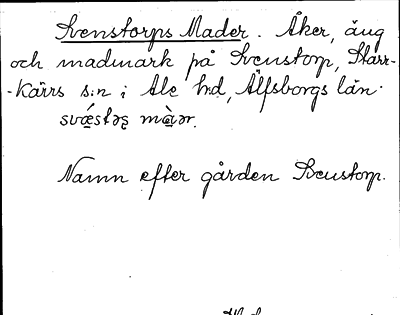 Svenstorps Mader. Åker, äng
och madmark på Svenstorp, Starr-
-Kärrs s:n i Ale hd, Älfsborgs län.
Namn efter gården Svenstorp.